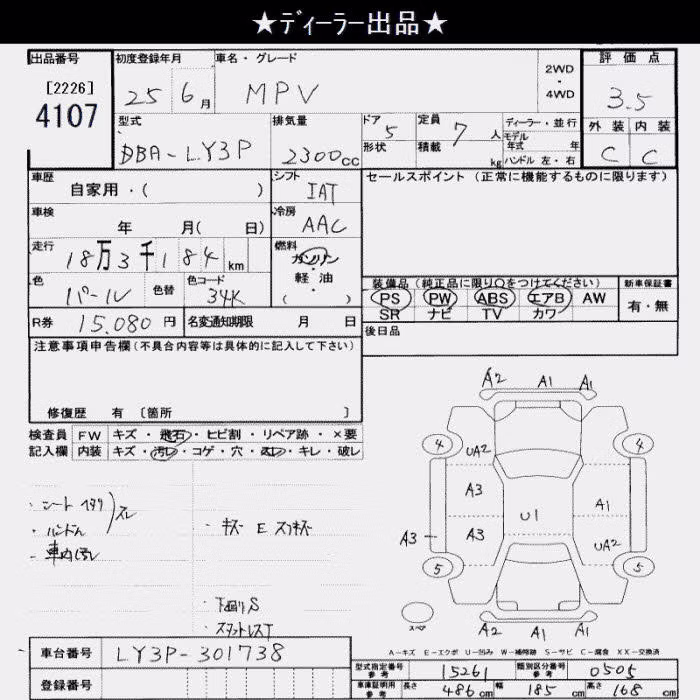 ★ディーラー出品★
出品番号 初度登録年月 車名・グレード 2WD・4WD 評価点
[2226] 4107 25 6月 MPV 3.5
型式 排気量 ドア形状 定員積載 ディーラー・並行 外装 内装
DBA-LY3P 2300cc 5 7人 kg モデル年式 年 ハンドル 左・右 C C
車歴 シフト セールスポイント (正常に機能するものに限ります)
自家用・( ) IAT
車検 冷房
年 月( 日) AAC
走行 燃料
18万3千184km ガソリン・軽油( )
色 色替 色コード 装備品 (純正品に限り○をつけてください) 新車保証書
パール 34K PS PW ABS エアB AW 有・無
SR ナビ TV カワ
R券 15,080円 名変通知期限 月 日 後日品
注意事項申告欄(不具合内容等は具体的に記入して下さい)
修復歴 有 〔箇所 〕
検査員 FW キズ・飛石・ヒビ割・リペア跡・×要
記入欄 内装 キズ・汚レ・コゲ・穴・スレ・キレ・破レ
A2 A1 A1
4 4
UA2
A3 A1
U1
A3 A3 UA2
5 5
・シート ヘタリ スレ
・ハンドル
・キズ E スリキズ
・車内汚レ
・下回りS
・スタットレスT
スペア
A2 A1 A1
A-キズ E-エクボ U-凹み W-補修跡 S-サビ C-腐食 XX-交換済
車台番号 LY3P-301738
登録番号
型式指定番号参考 15261 類別区分番号参考 0505
車庫証明用参考 長さ 486cm 幅 185cm 高さ 168cm